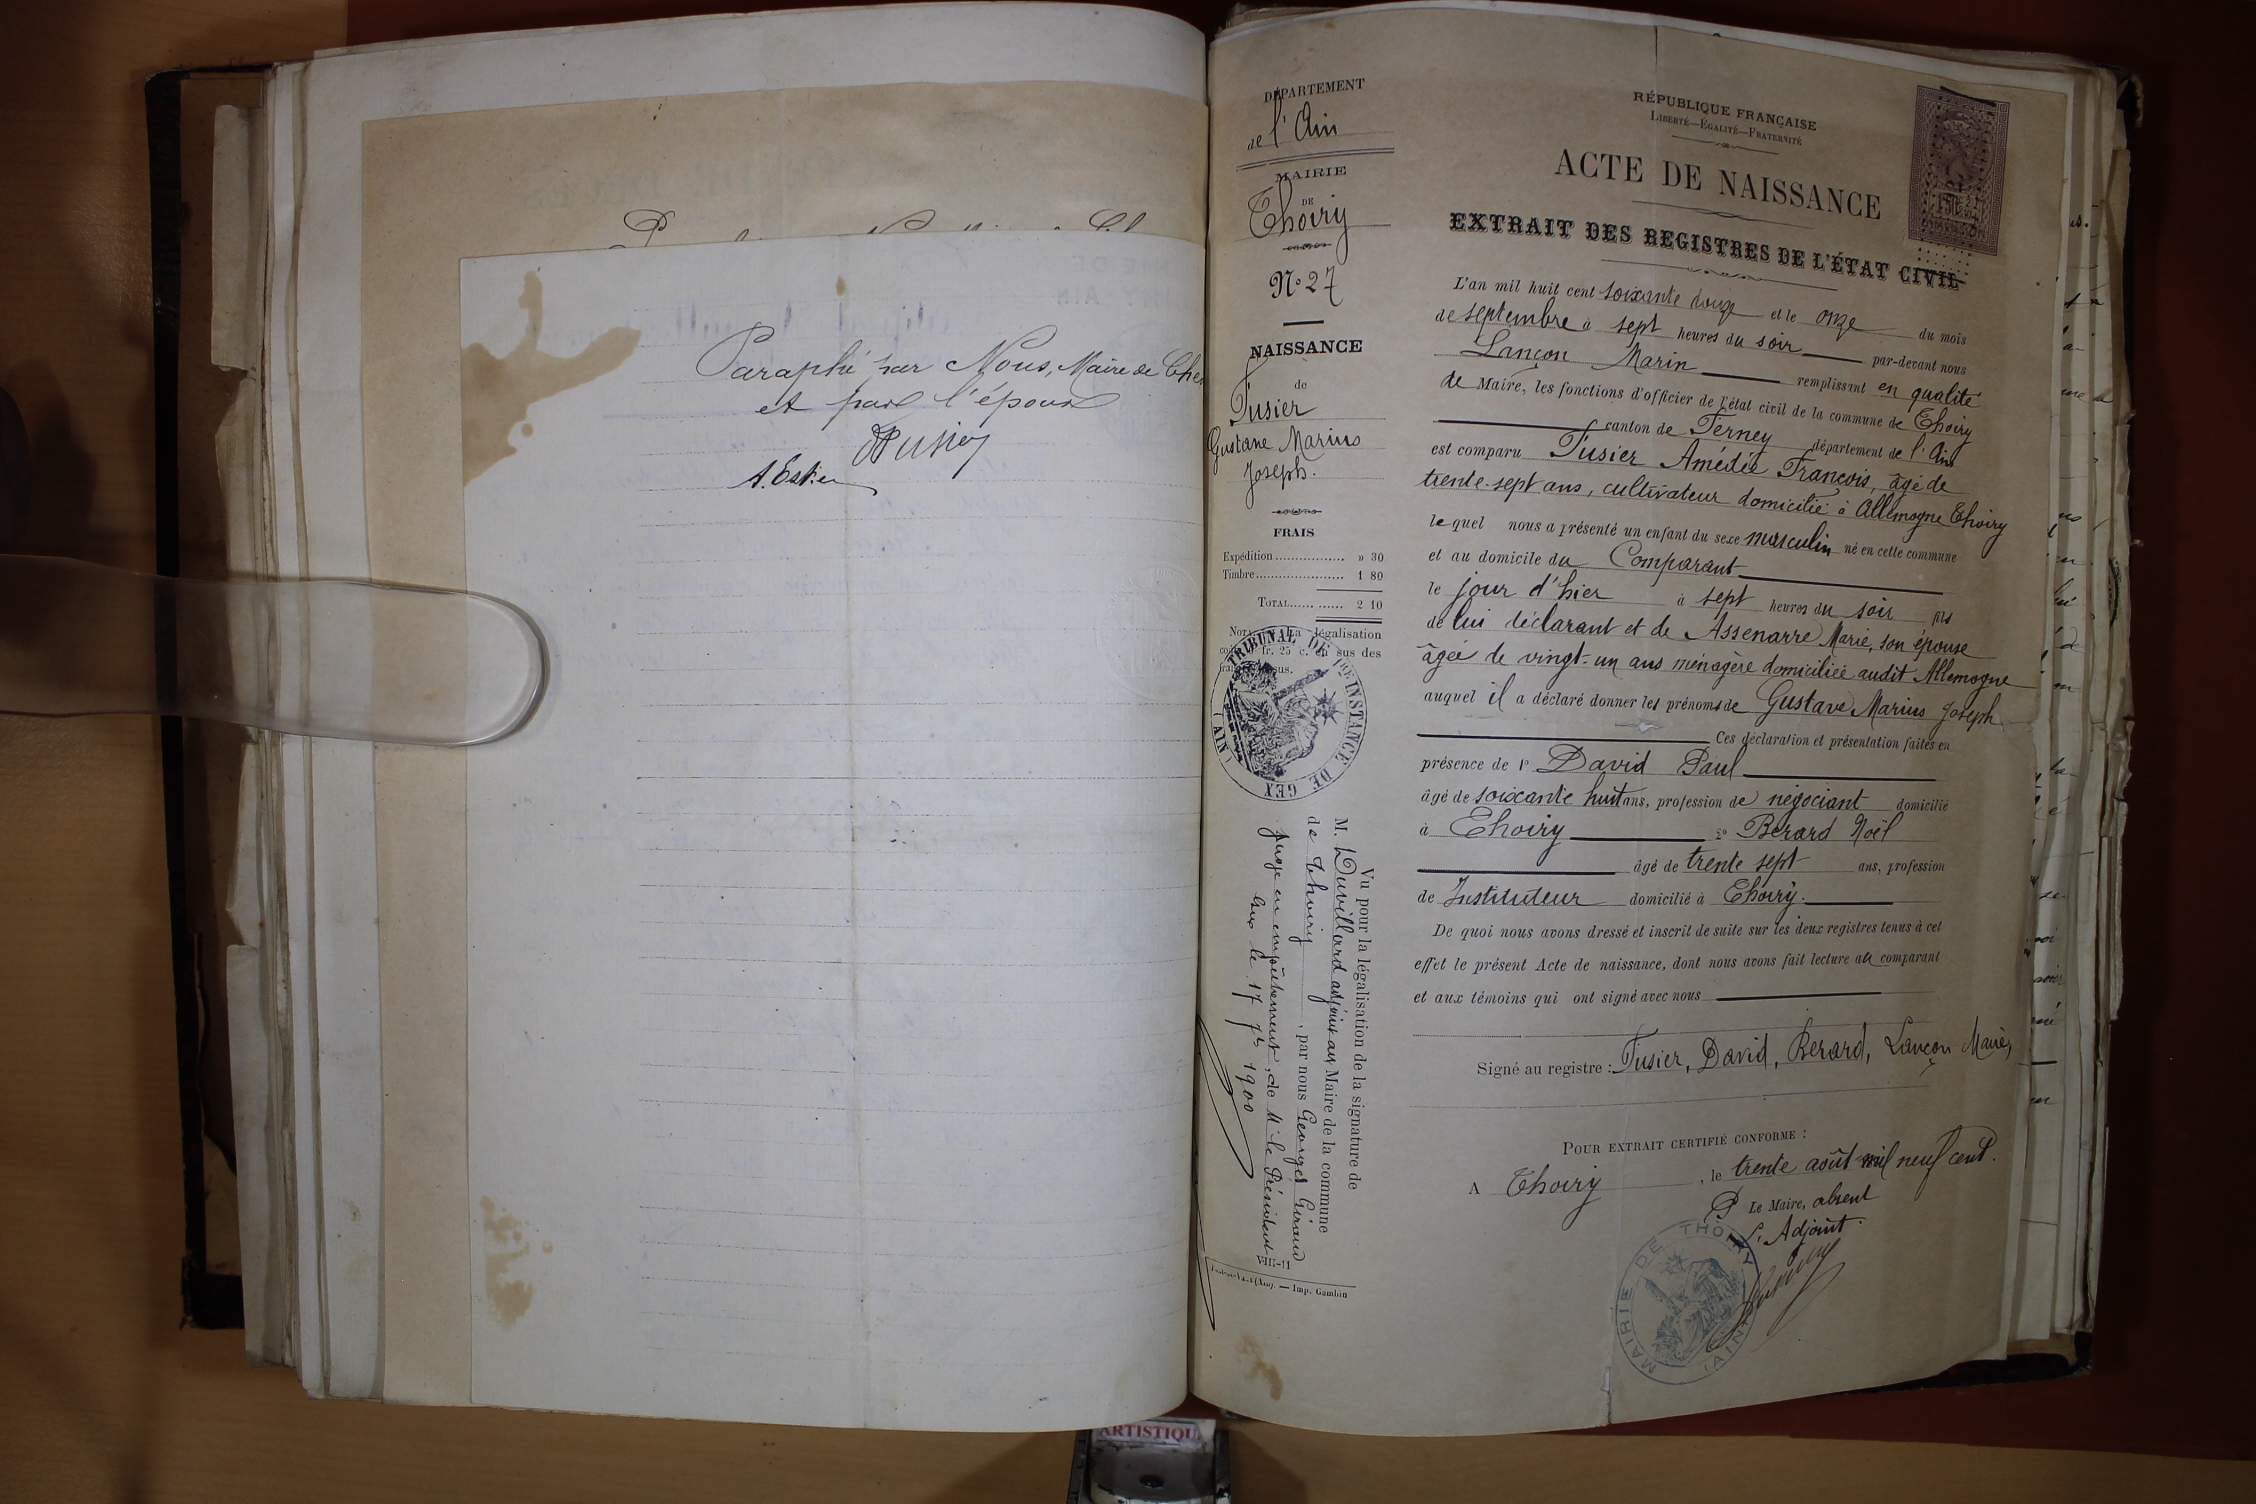 Paraphé par Nous, Maire de Che
et par l'époux
A. Estier
DÉPARTEMENT
de l'Ain
MAIRIE
DE
Thoiry
N° 27
NAISSANCE
de
Fusier
Gustave Marius
Joseph.
FRAIS
Expédition » 30
Timbre 1 80
TOTAL 2 10
légalisation
fr. 25 c. en sus des
TRIBUNAL DE 1RE INSTANCE DE GEX (AIN)
Vu pour la légalisation de la signature de
M. Duvillard adjoint au Maire de la commune
de Thoiry, par nous Georges Giraud
juge en empêchement de M. le Président
Gex le 17 7bre 1900
VIII-11
Imp. Gambin
RÉPUBLIQUE FRANÇAISE
LIBERTÉ—ÉGALITÉ—FRATERNITÉ
ACTE DE NAISSANCE
EXTRAIT DES REGISTRES DE L'ÉTAT CIVIL
L'an mil huit cent soixante douze et le onze du mois
de septembre à sept heures du soir par-devant nous
Lançon Marin remplissant en qualité
de Maire, les fonctions d'officier de l'état civil de la commune de Thoiry
canton de Ferney département de l'Ain
est comparu Fusier Amédée François, âgé de
trente-sept ans, cultivateur domicilié à Allemogne Thoiry
lequel nous a présenté un enfant du sexe masculin né en cette commune
et au domicile du Comparant
le jour d'hier à sept heures du soir fils
de lui déclarant et de Assenarre Marie, son épouse
âgée de vingt-un ans ménagère domiciliée audit Allemogne
auquel il a déclaré donner les prénoms de Gustave Marius Joseph
Ces déclaration et présentation faites en
présence de 1° David Paul
âgé de soixante huit ans, profession de négociant domicilié
à Thoiry 2° Berard Noël
âgé de trente sept ans, profession
de Instituteur domicilié à Thoiry.
De quoi nous avons dressé et inscrit de suite sur les deux registres tenus à cet
effet le présent Acte de naissance, dont nous avons fait lecture au comparant
et aux témoins qui ont signé avec nous
Signé au registre : Fusier, David, Berard, Lançon Maire,
POUR EXTRAIT CERTIFIÉ CONFORME :
A Thoiry, le trente août mil neuf cent.
P. Le Maire, absent
L'Adjoint.
MAIRIE DE THOIRY (AIN)
ARTISTIQU